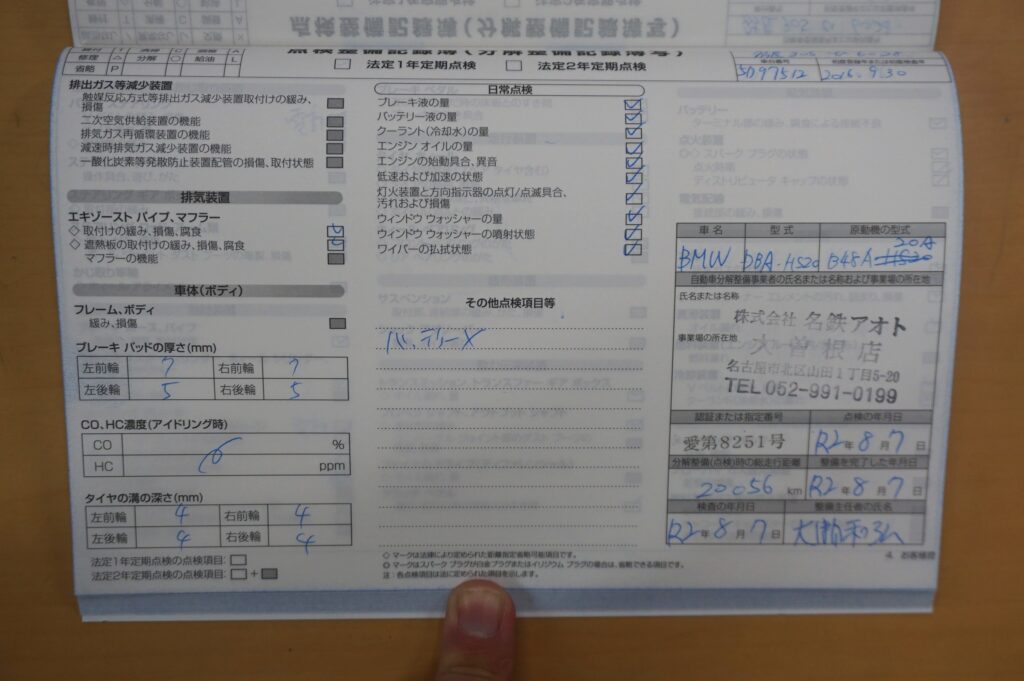 点検整備記録簿(分解整備記録簿写)
修理 △ 分解 ○ 給油 L
省略 P
法定1年定期点検
法定2年定期点検
5D97512
2016.9.30
排出ガス等減少装置
触媒反応方式等排出ガス減少装置取付けの緩み、
損傷
二次空気供給装置の機能
排気ガス再循環装置の機能
減速時排気ガス減少装置の機能
一酸化炭素等発散防止装置配管の損傷、取付状態
排気装置
エキゾースト パイプ、マフラー
◇ 取付けの緩み、損傷、腐食
◇ 遮熱板の取付けの緩み、損傷、腐食
マフラーの機能
車体(ボディ)
フレーム、ボディ
緩み、損傷
ブレーキ パッドの厚さ(mm)
左前輪 7 右前輪 7
左後輪 5 右後輪 5
CO、HC濃度(アイドリング時)
CO %
HC ppm
タイヤの溝の深さ(mm)
左前輪 4 右前輪 4
左後輪 4 右後輪 4
法定1年定期点検の点検項目:
法定2年定期点検の点検項目: +
日常点検
ブレーキ液の量
バッテリー液の量
クーラント(冷却水)の量
エンジン オイルの量
エンジンの始動具合、異音
低速および加速の状態
灯火装置と方向指示器の点灯/点滅具合、
汚れおよび損傷
ウィンドウ ウォッシャーの量
ウィンドウ ウォッシャーの噴射状態
ワイパーの払拭状態
その他点検項目等
バッテリーX
◇ マークは法律により定められた距離指定省略可能項目です。
◎ マークはスパーク プラグが白金プラグまたはイリジウム プラグの場合は、省略できる項目です。
注:各点検項目は法に定められた項目を示します。
車名 型式 原動機の型式
BMW DBA-HS20 B48A 20A
自動車分解整備事業者の氏名または名称および事業場の所在地
氏名または名称
株式会社 名鉄アオト
事業場の所在地
大曽根店
名古屋市北区山田1丁目5-20
TEL 052-991-0199
認証または指定番号 点検の年月日
愛第8251号 R2年8月7日
分解整備(点検)時の総走行距離 整備を完了した年月日
20056 km R2年8月7日
検査の年月日 整備主任者の氏名
R2年8月7日
4. お客様控